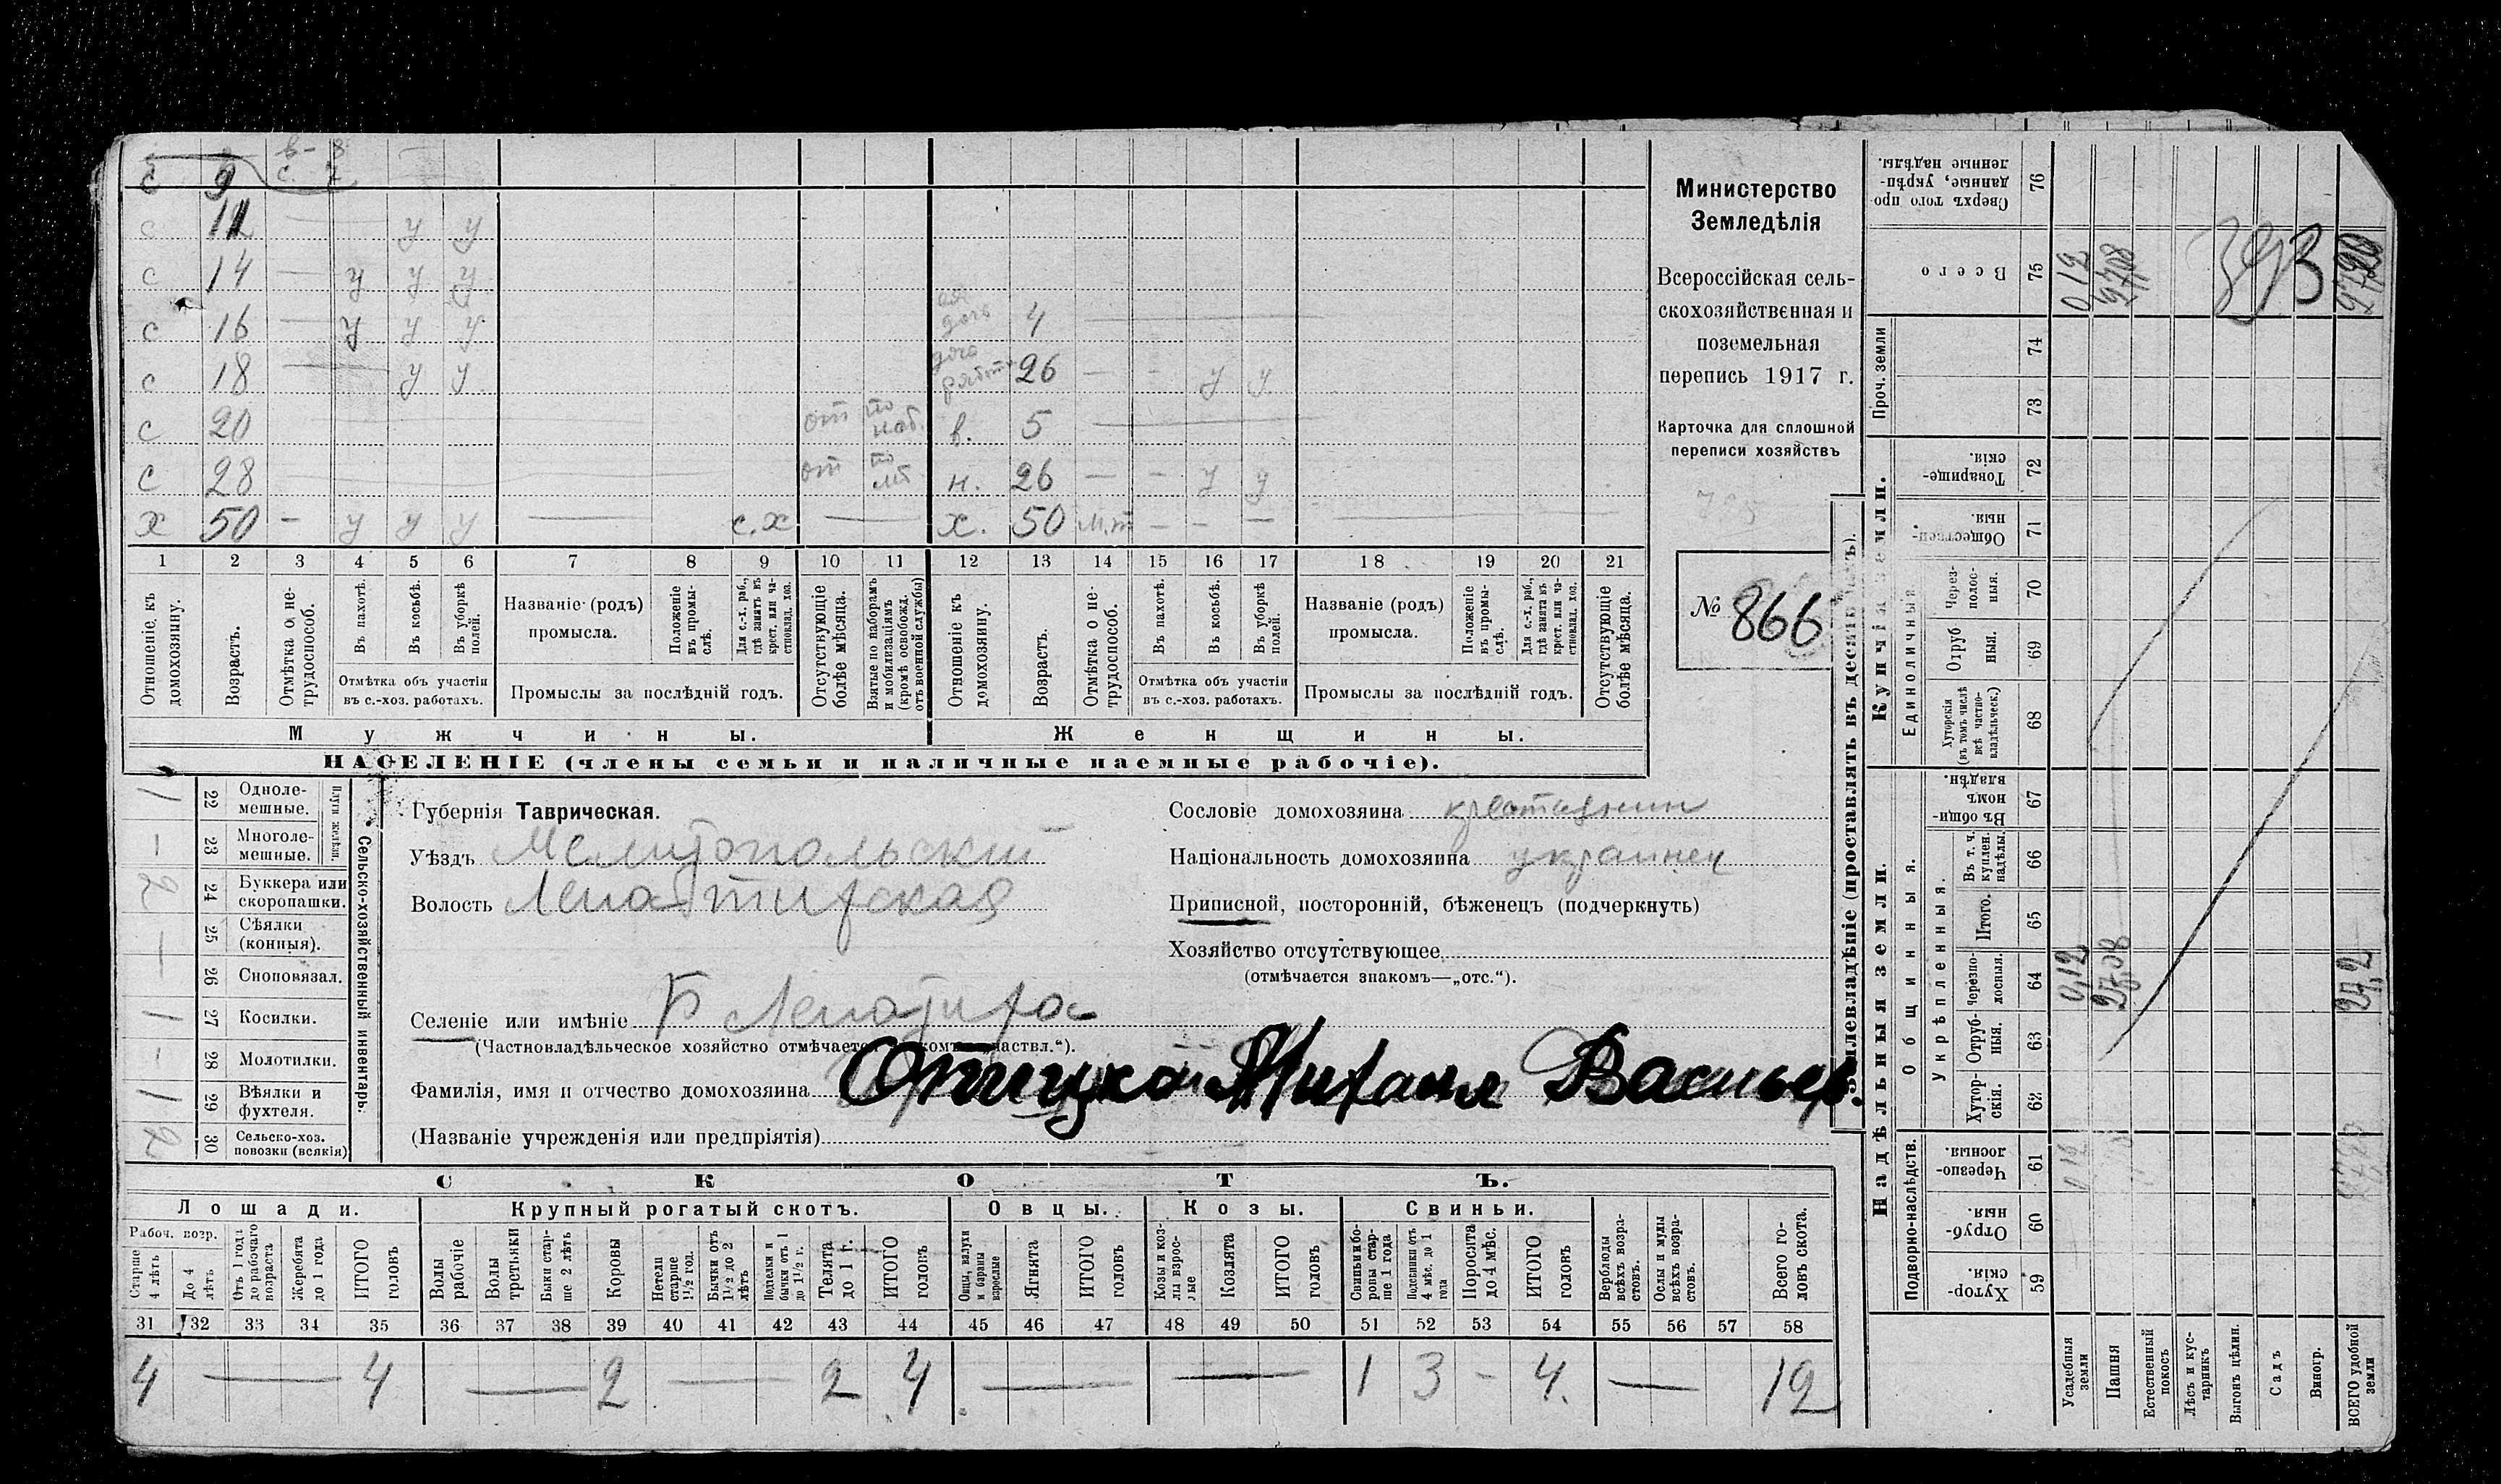 в - 8
с 9 с. 7
с 12 — у у
с 14 — у у у
с 16 — у у у 4 —
с 18 — у у 26 — - у у
с 20 от по в. 5 —
с 28 от по н. 26 — - у у
х 50 - у у у — с.х — х. 50 — - — —
1 2 3 4 5 6 7 8 9 10 11 12 13 14 15 16 17 18 19 20 21
Отношеніе къ домохозяину.
Возрастъ.
Отмѣтка о не-трудоспособ.
Въ пахотѣ.
Въ косьбѣ.
Въ уборкѣ полей.
Отмѣтка объ участіи
въ с.-хоз. работахъ.
Названіе (родъ)
промысла.
Положеніе въ промы-слѣ.
Для с.-х. раб., гдѣ занятъ въ крест. или ча-стновлад. хоз.
Промыслы за послѣдній годъ.
Отсутствующіе болѣе мѣсяца.
Взятые по наборамъ и мобилизаціямъ (кромѣ освобожд. отъ военной службы)
Отношеніе къ домохозяину.
Возрастъ.
Отмѣтка о не-трудоспособ.
Въ пахотѣ.
Въ косьбѣ.
Въ уборкѣ полей.
Отмѣтка объ участіи
въ с.-хоз. работахъ.
Названіе (родъ)
промысла.
Положеніе въ промы-слѣ.
Для с.-х. раб., гдѣ занята въ крест. или ча-стновлад. хоз.
Промыслы за послѣдній годъ.
Отсутствующіе болѣе мѣсяца.
Мужчины.
Женщины.
НАСЕЛЕНІЕ (члены семьи и наличные наемные рабочіе).
Министерство
Земледѣлія
Всероссійская сель-
скохозяйственная и
поземельная
перепись 1917 г.
Карточка для сплошной
переписи хозяйствъ
№ 866
1 22 Одноле-мешные.
- 23 Многоле-мешные.
Плуги желѣзн.
2 24 Буккера или скоропашки.
— 25 Сѣялки (конныя).
— 26 Сноповязал.
1 27 Косилки.
- 28 Молотилки.
1 29 Вѣялки и фухтеля.
2 30 Сельско-хоз. повозки (всякія)
Сельско-хозяйственный инвентарь.
Губернія Таврическая.
Уѣздъ Мелитопольский
Волость Лепатихская
Селеніе или имѣніе Б Лепатиха
(Частновладѣльческое хозяйство отмѣчается
Фамилія, имя и отчество домохозяина Михаил Васильев.
(Названіе учрежденія или предпріятія)
Сословіе домохозяина крестьянин
Національность домохозяина украинец
Приписной, посторонній, бѣженецъ (подчеркнуть)
Хозяйство отсутствующее
(отмѣчается знакомъ—„отс.“).
СКОТЪ.
Лошади. Крупный рогатый скотъ. Овцы. Козы. Свиньи.
Рабоч. возр.
Старше 4 лѣтъ
До 4 лѣтъ
Отъ 1 года до рабочаго возраста
Жеребята до 1 года
ИТОГО головъ
Волы рабочіе
Волы третьяки
Быки стар-ше 2 лѣтъ
Коровы
Нетели старше 1½ год.
Бычки отъ 1½ до 2 лѣтъ
Подтелки и бычки отъ 1 до 1½ г.
Телята до 1 г.
ИТОГО головъ
Овцы, валухи и бараны взрослые
Ягнята
ИТОГО головъ
Козы и коз-лы взрос-лые
Козлята
ИТОГО головъ
Свиньи и бо-ровы стар-ше 1 года
Подсвинки отъ 4 мѣс. до 1 года
Поросята до 4 мѣс.
ИТОГО головъ
Верблюды всѣхъ возра-стовъ.
Ослы и мулы всѣхъ возра-стовъ.
Всего го-ловъ скота.
31 32 33 34 35 36 37 38 39 40 41 42 43 44 45 46 47 48 49 50 51 52 53 54 55 56 57 58
4 — 4 — 2 — 2 4 — — 1 3 - 4. — 12
Землевладѣніе (проставлять въ десятинахъ).
Надѣльныя земли.
Купчія земли.
Проч. земли
Подворно-наслѣдств.
Общинныя.
Укрѣпленныя.
Единоличныя
Сверхъ того про-данные, укрѣп-ленные надѣлы. 76
Всего 75 0 12 27,08 393 2720
74
73
Товарище-скія. 72
Обществен-ныя. 71
Через-полос-ныя. 70
Отруб ныя. 69
Хуторскія (въ томъ числѣ всѣ частно-владѣльческ.) 68
Въ общин-номъ владѣн. 67
Въ т. ч. куплен. надѣлы. 66
Итого. 65
Черезпо-лосныя. 64 0,12 27,08 27,2
Отруб-ныя. 63
Хутор-скія. 62
Черезпо-лосныя. 61
Отруб-ныя. 60
Хутор-скія. 59
Усадебныя земли
Пашня
Естественный покосъ
Лѣсъ и кус-тарникъ
Выгонъ цѣлин.
Садъ
Виногр.
ВСЕГО удобной земли